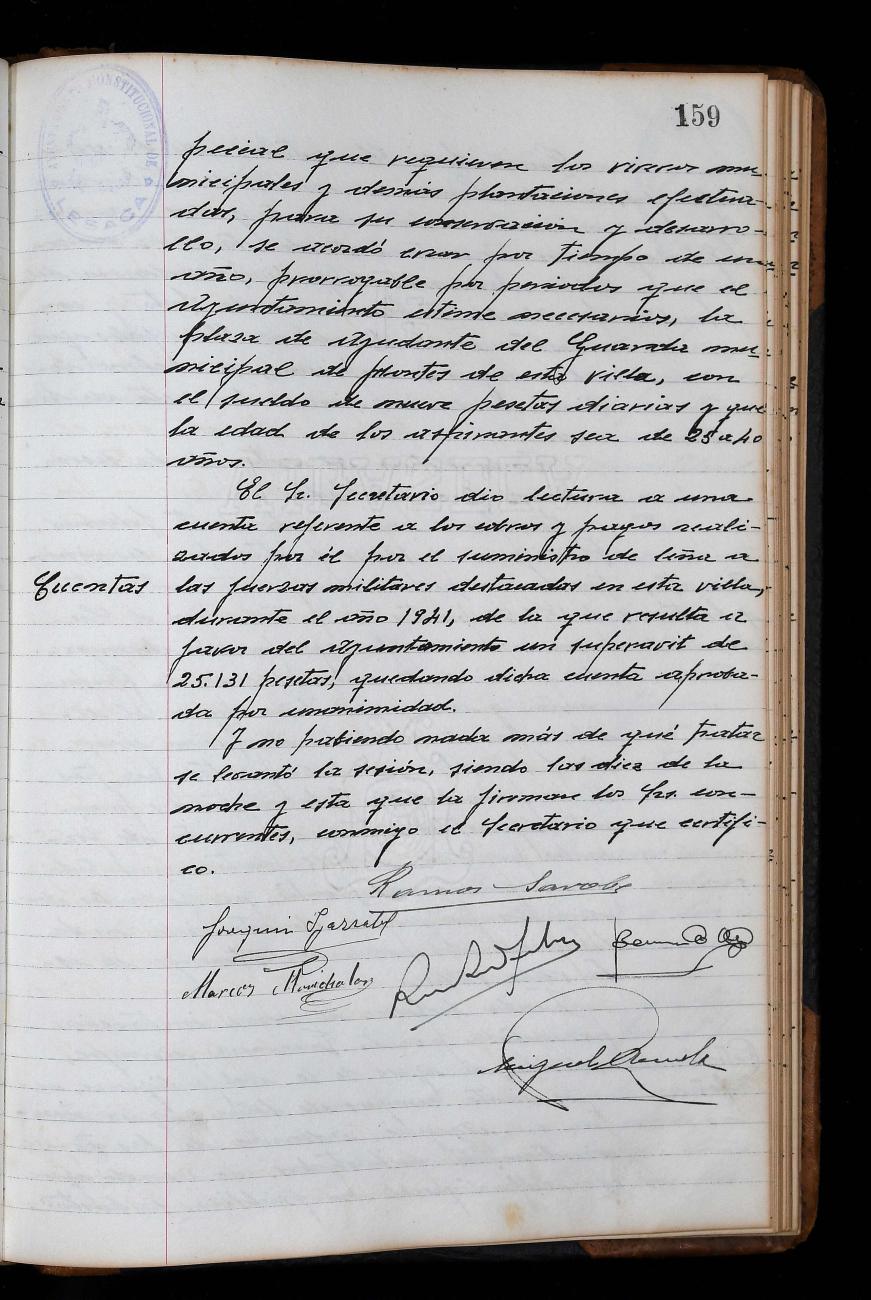 159
AYUNTAMIENTO CONSTITUCIONAL DE LESACA
pecial que requieren los viveros mu-
nicipales y demás plantaciones efectua-
das, para su conservación y desarro-
llo, se acordó crear por tiempo de un
año, prorrogable por periodos que el
Ayuntamiento estime necesarios, la
plaza de Ayudante del Guarda mu-
nicipal de Montes de esta villa, con
el sueldo de nueve pesetas diarias y que
la edad de los aspirantes sea de 25 a 40
años.
El Sr. Secretario dio lectura a una
cuenta referente a los cobros y pagos reali-
zados por él por el suministro de leña a
Cuentas
las fuerzas militares destacadas en esta villa,
durante el año 1941, de la que resulta a
favor del Ayuntamiento un superavit de
25.131 pesetas, quedando dicha cuenta aproba-
da por unanimidad.
Y no habiendo nada más de qué tratar
se levantó la sesión, siendo las diez de la
noche y esta que la firman los Srs. con-
currentes, conmigo el Secretario que certifi-
co.
Ramos
Joaquin
Marcos
Miguel